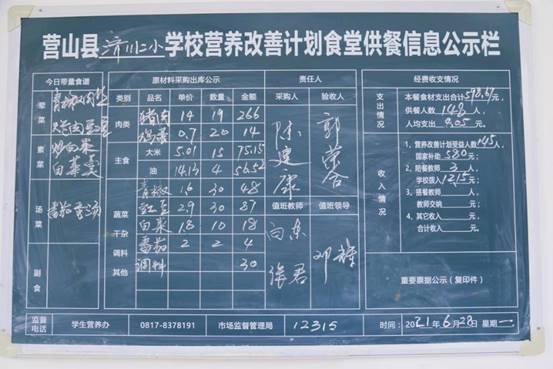 营山县济川二小学校营养改善计划食堂供餐信息公示栏
今日带量食谱
荤菜 青椒肉丝
素菜 炒白菜
汤菜 番茄蛋汤
副食
原材料采购出库公示
类别 品名 单价 数量 金额
肉类 猪肉 14 19 266
鸡蛋 0.7 20 14
主食 大米 5.01 15 75.15
油 14.13 4 56.52
蔬菜 青椒 1.6 30 48
豇豆 2.9 30 87
干杂 白菜 1.8 10 18
调料 番茄 2 2 4
其他 调料 30
责任人
采购人 验收人
陈建康 郭荣合
值班教师 值班领导
徐君 邓辉
经费收支情况
支出情况
本餐食材支出合计598.67元
供餐人数 148 人
人均支出 4.05 元
收入情况
1、营养改善计划受益人数 145 人
国家补助 580 元;
2、陪餐教师 3 人
学校拨入 12.15 元;
3、搭餐教师 人
教师交纳 元;
4、其它收入 元
合计收入 元;
重要票据公示(复印件)
监督电话 学生营养办 0817-8378191 市场监督管理局 12315 时间:2021年6月28日 星期一